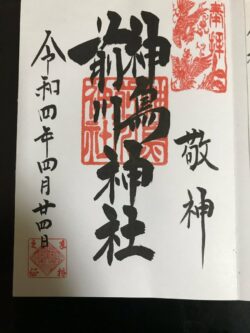 奉拝
敬神
神鳥前川神社
令和四年四月廿四日